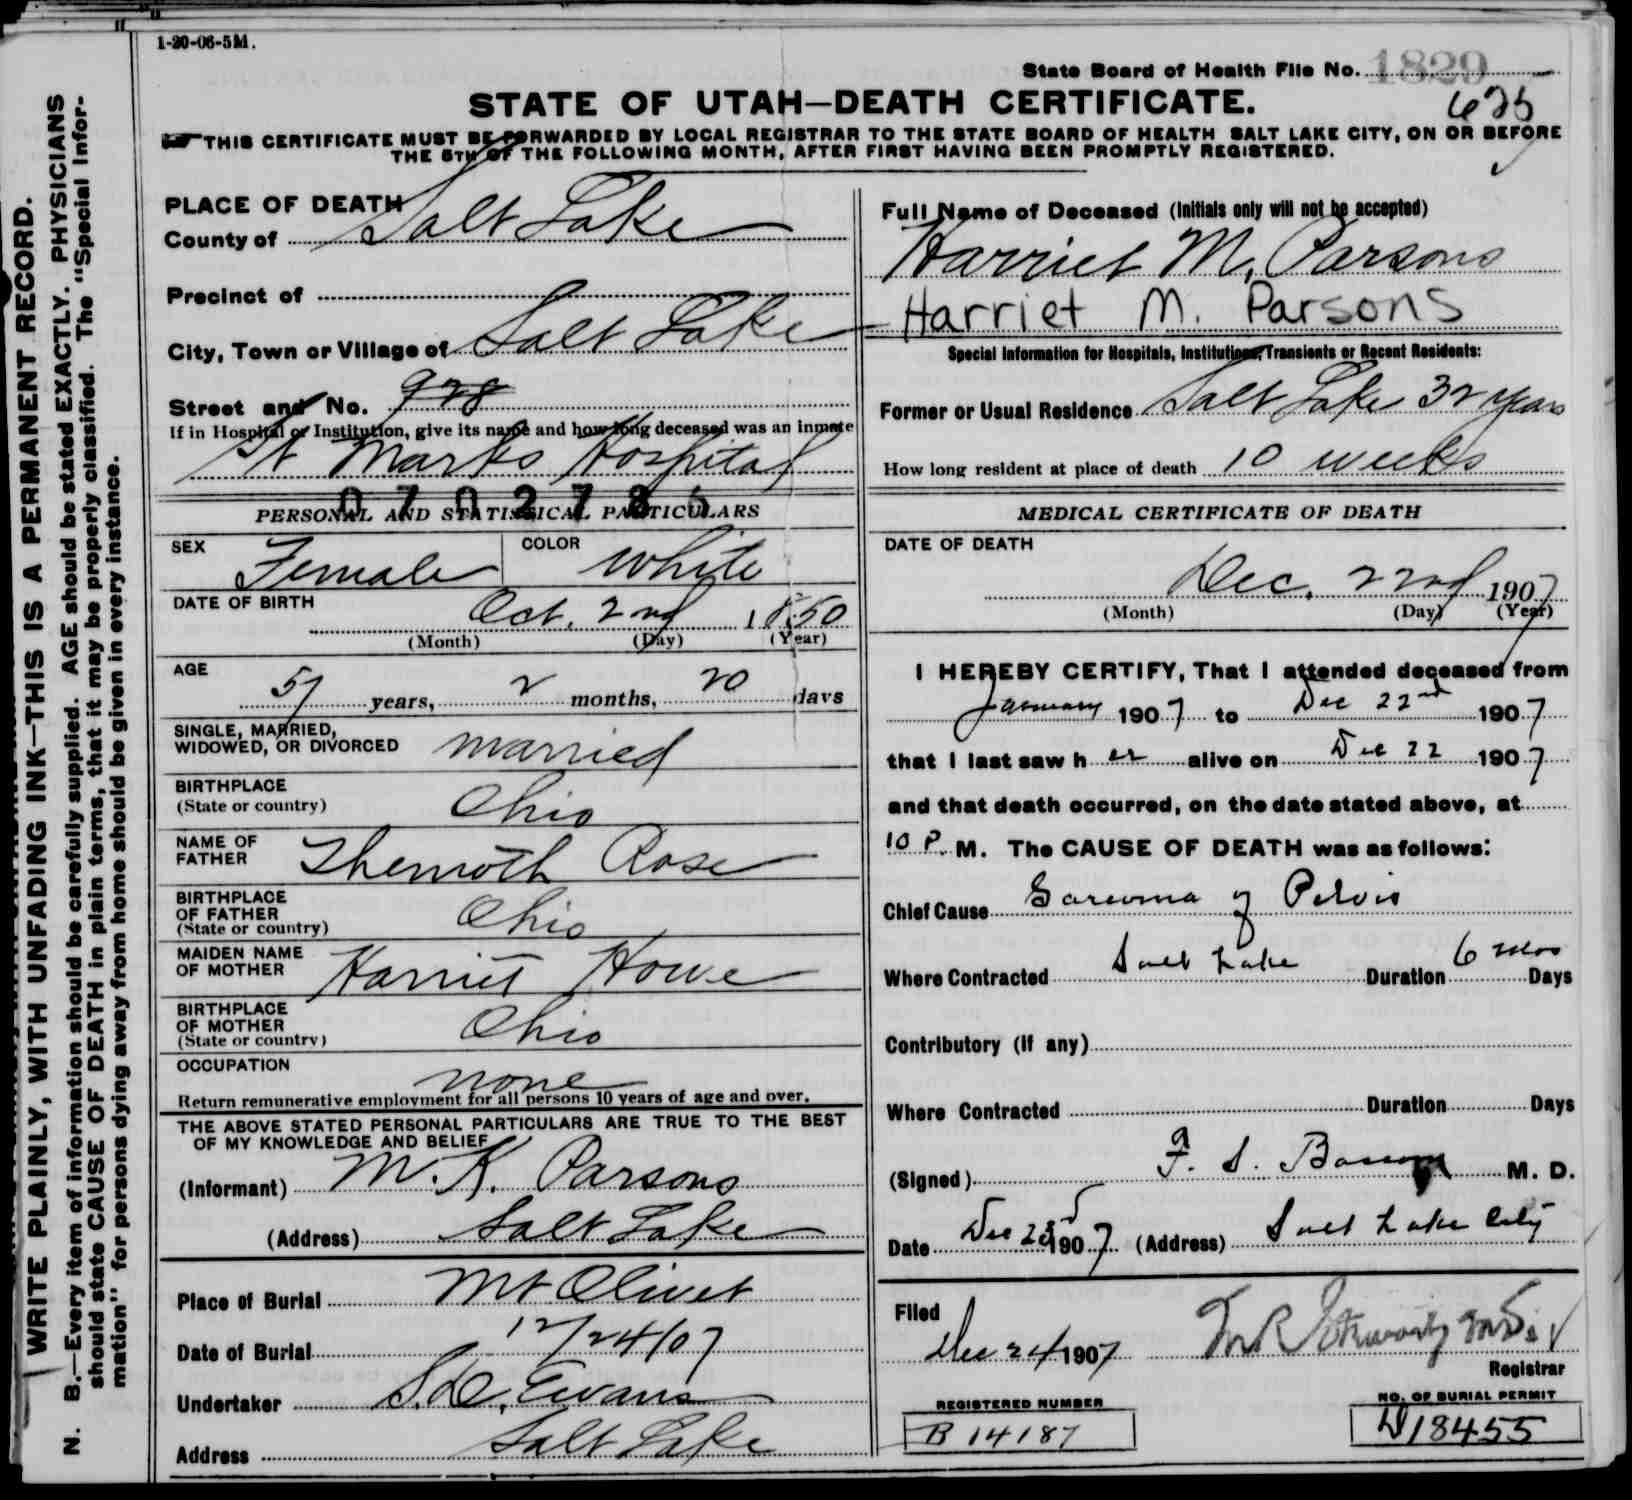 1-20-06-5M.
State Board of Health File No. 1829
625
STATE OF UTAH—DEATH CERTIFICATE.
THIS CERTIFICATE MUST BE FORWARDED BY LOCAL REGISTRAR TO THE STATE BOARD OF HEALTH SALT LAKE CITY, ON OR BEFORE
THE 5TH OF THE FOLLOWING MONTH, AFTER FIRST HAVING BEEN PROMPTLY REGISTERED.
WRITE PLAINLY, WITH UNFADING INK—THIS IS A PERMANENT RECORD.
N. B.—Every item of information should be carefully supplied. AGE should be stated EXACTLY. PHYSICIANS
should state CAUSE OF DEATH in plain terms, that it may be properly classified. The "Special Infor-
mation" for persons dying away from home should be given in every instance.
PLACE OF DEATH
County of Salt Lake
Precinct of
City, Town or Village of Salt Lake
Street and No. 928
If in Hospital or Institution, give its name and how long deceased was an inmate
St Marks Hospital
0702786
PERSONAL AND STATISTICAL PARTICULARS
SEX Female COLOR White
DATE OF BIRTH Oct. 2nd 1850
(Month) (Day) (Year)
AGE
57 years, 2 months, 20 days
SINGLE, MARRIED,
WIDOWED, OR DIVORCED married
BIRTHPLACE
(State or country) Ohio
NAME OF
FATHER Rose
BIRTHPLACE
OF FATHER
(State or country) Ohio
MAIDEN NAME
OF MOTHER Harriet Howe
BIRTHPLACE
OF MOTHER
(State or country) Ohio
OCCUPATION
none
Return remunerative employment for all persons 10 years of age and over.
THE ABOVE STATED PERSONAL PARTICULARS ARE TRUE TO THE BEST
OF MY KNOWLEDGE AND BELIEF
(Informant) M. K. Parsons
(Address) Salt Lake
Place of Burial Mt Olivet
Date of Burial 12/24/07
Undertaker S. D. Evans
Address Salt Lake
Full Name of Deceased (Initials only will not be accepted)
Harriet M. Parsons
Harriet M. Parsons
Special Information for Hospitals, Institutions, Transients or Recent Residents:
Former or Usual Residence Salt Lake 32 years
How long resident at place of death 10 weeks
MEDICAL CERTIFICATE OF DEATH
DATE OF DEATH
Dec. 22nd 1907
(Month) (Day) (Year)
I HEREBY CERTIFY, That I attended deceased from
January 1907 to Dec 22nd 1907
that I last saw her alive on Dec 22 1907
and that death occurred, on the date stated above, at
10 P. M. The CAUSE OF DEATH was as follows:
Chief Cause Sarcoma of Pelvis
Where Contracted Salt Lake Duration 6 mos Days
Contributory (If any)
Where Contracted Duration Days
(Signed) F. S. Bascom M. D.
Date Dec 1907 (Address) Salt Lake City
Filed
Dec 24 1907
Registrar
REGISTERED NUMBER
B 14187
NO. OF BURIAL PERMIT
D18455